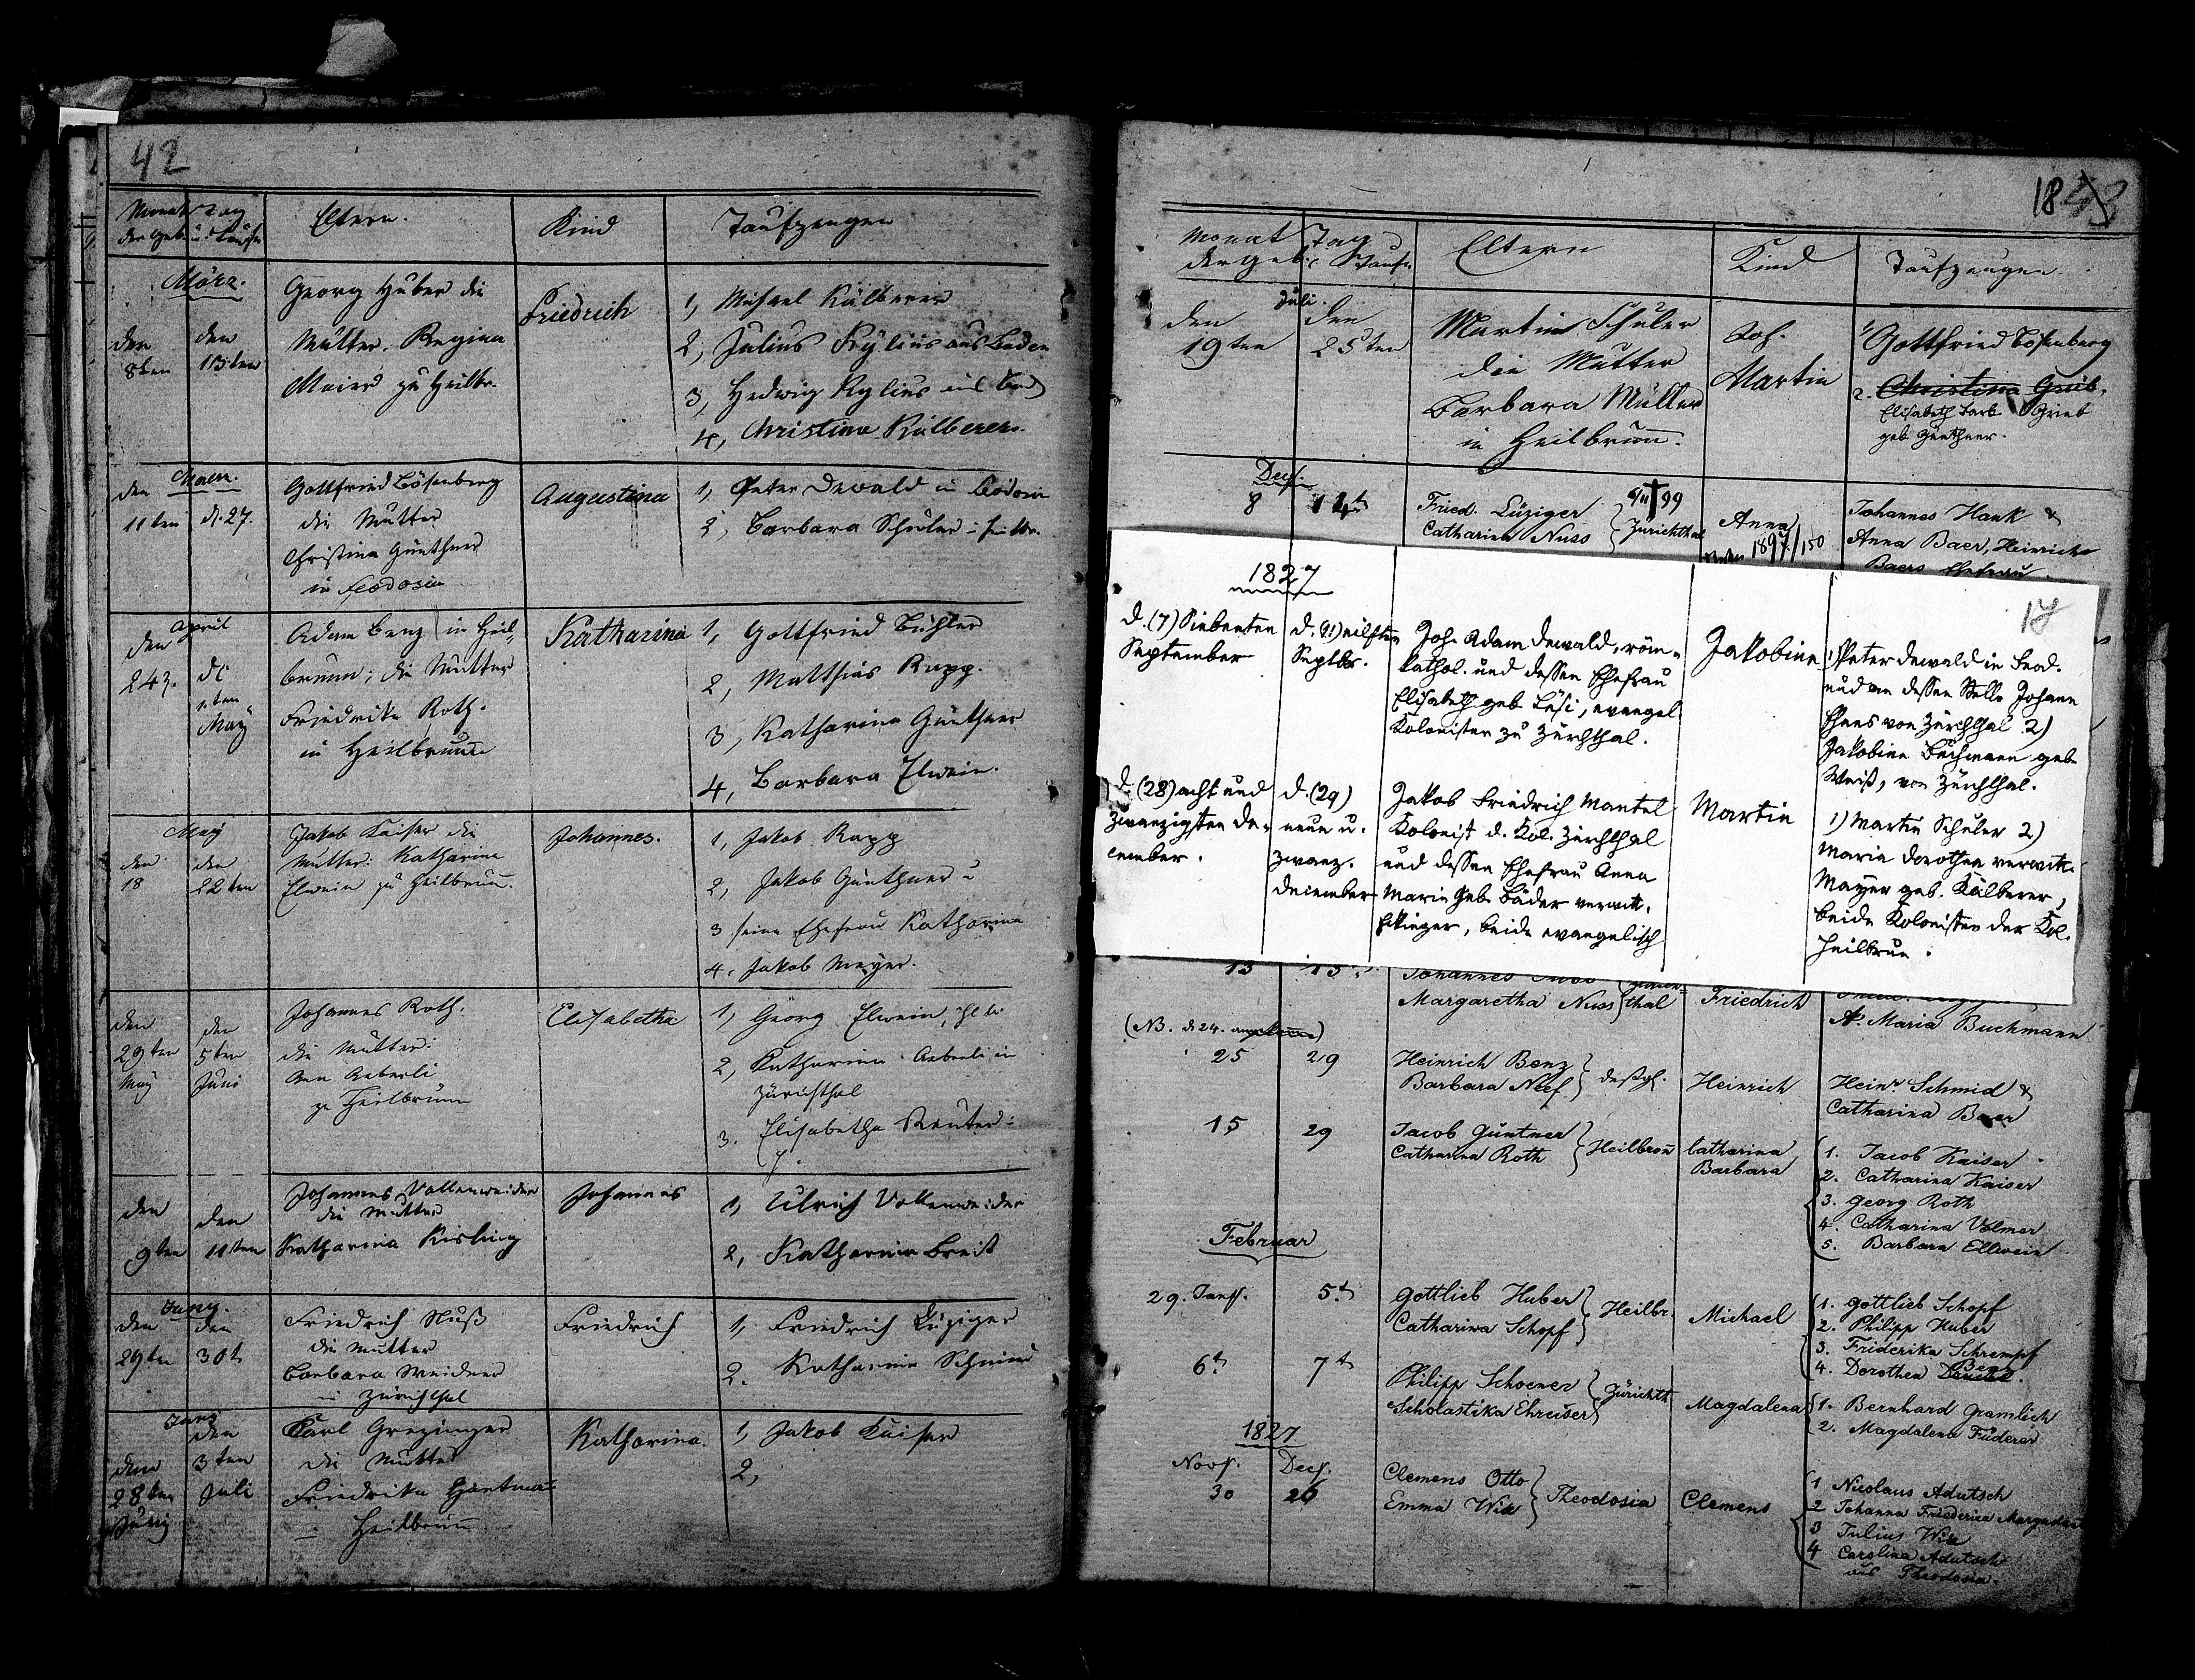 42
Monat Tag
der Geb. u. Taufe
Eltern.
Kind
Taufzeugen
März.
den 8ten
den 13ten
Georg Huber die
Mutter, Regina
Maier zu Heilbr.
Friedrich
1, Michael Kälberer
2, Julius Kylius aus Boden
3, Hedwig Kylius aus Bod
4, Christina Kälberer.
den 11ten
d. 27.
Gottfried Bösenberg
die Mutter
Christina Günthner
in Feodosia
Augustina
1, Peter Dewald in
2, Barbara Schuler
April
den
24
1ten
May
Adam Benz in Heil-
brunn; die Mutter
Friedrika Roth.
in Heilbrunn
Katharina
1, Gottfried Bühler
2, Matthias Rapp.
3, Katharina Günthner
4, Barbara Elwein.
May
den 18
den 22ten
Jakob Kaiser die
Mutter: Katharina
Elwein zu Heilbrunn.
Johannes.
1, Jakob Rapp
2, Jakob Günthner u
3 seine Ehefrau Katharina
4, Jakob Meyer.
den
29ten
May
den
5ten
Juni
Johannes Roth.
die Mutter:
Aeberli
zu Heilbrunn
Elisabetha
1, Georg Elwein,
2, Katharina Aeberli in
Zürichthal
3. Elisabetha Reuter
den
9ten
den
11ten
Johannes Vollenweider
die Mutter
Katharina Kisling
Johannes
1, Ulrich Vollenweider
2, Katharina Breit
Juny.
den
29ten
den
30t
Friedrich Nuß
die Mutter
Barbara Weidner
in Zürichthal
Friedrich
1, Friedrich Luziger
2. Katharina Schmid
Juny
den
28ten
Juny
den
3ten
Juli
Karl Grezinger
die Mutter
Friedrika
Heilbrunn
Katharina.
1, Jakob Kaiser
2,
18
43
Monat Tag
der Geb. Taufe
Eltern
Kind
Taufzeugen.
Juli.
den
19ten
den
25ten
Martin Schuler
die Mutter
Barbara Müller
in Heilbrunn.
Joh.
Martin
1, Gottfried Bösenberg
2. Christina Grieb.
Elisabeth Barb. Grieb
geb Günthner.
Dec.
8
14t
Fried. Luziger
Catharina Nuss
Zürichthal
6/II † 99
Anna
1897/150
Johannes Hauk &
Anna Baer, Heinrich
Baers Ehefrau.
1827
17
d. (7) Siebenten
September
d. (11) eilften
Septbr.
Joh. Adam Dewald, röm-
kathol. und dessen Ehefrau
Elisabeth geb Läsi, evangel
Kolonisten zu Zürchthal.
Jakobine
1) Peter Dewald in Feod.
und an dessen Stelle Johann
Haas von Zürchthal 2)
Jakobina Buchmann geb
Weiß, von Zürchthal.
d. (28) acht und
zwanzigsten De-
cember.
d. (29)
neun u.
zwanz.
December
Jakob Friedrich Mantel
Kolonist d. Kol. Zürchthal
und dessen Ehefrau Anna
Marie geb. Bäder verwit.
beide evangelisch
Martin
1) Martin Schuler 2)
Maria Dorothea verwit.
Mayer geb. Kälberer,
beide Kolonisten der Kol.
Heilbrun.
13
13
Johannes
Margaretha Nuss
thal
Friedrich
A. Maria Buchmann
(NB. d. 24.
25
29
Heinrich Benz
Barbara Neef
deßgl.
Heinrich
Heinr. Schmid &
Catharina Baer
15
29
Jacob Güntner
Catharina Roth
Heilbronn
Catharina
Barbara
1. Jacob Kaiser
2. Catharina Kaiser
3. Georg Roth
4. Catharina Volmer
5. Barbara Ellwein
Februar
29. Jan.
5t
Gottlieb Huber
Catharina Schopf
Heilbr.
Michael
1. Gottlieb Schopf
2. Philipp Huber
3. Friderika Schrempf
4. Dorothea Benz
6t
7t
Philipp Schoener
Scholastika Ehreiser
Zürichth
Magdalena
1. Bernhard Gramlich
2. Magdalena Füderer
1827
Nov.
30
Dec.
26
Clemens Otto
Emma Wix
Theodosia
Clemens
1 Nicolaus Adutsch
2 Johanna Friederica
3 Julius Wix
4 Carolina Adutsch
aus Theodosia.